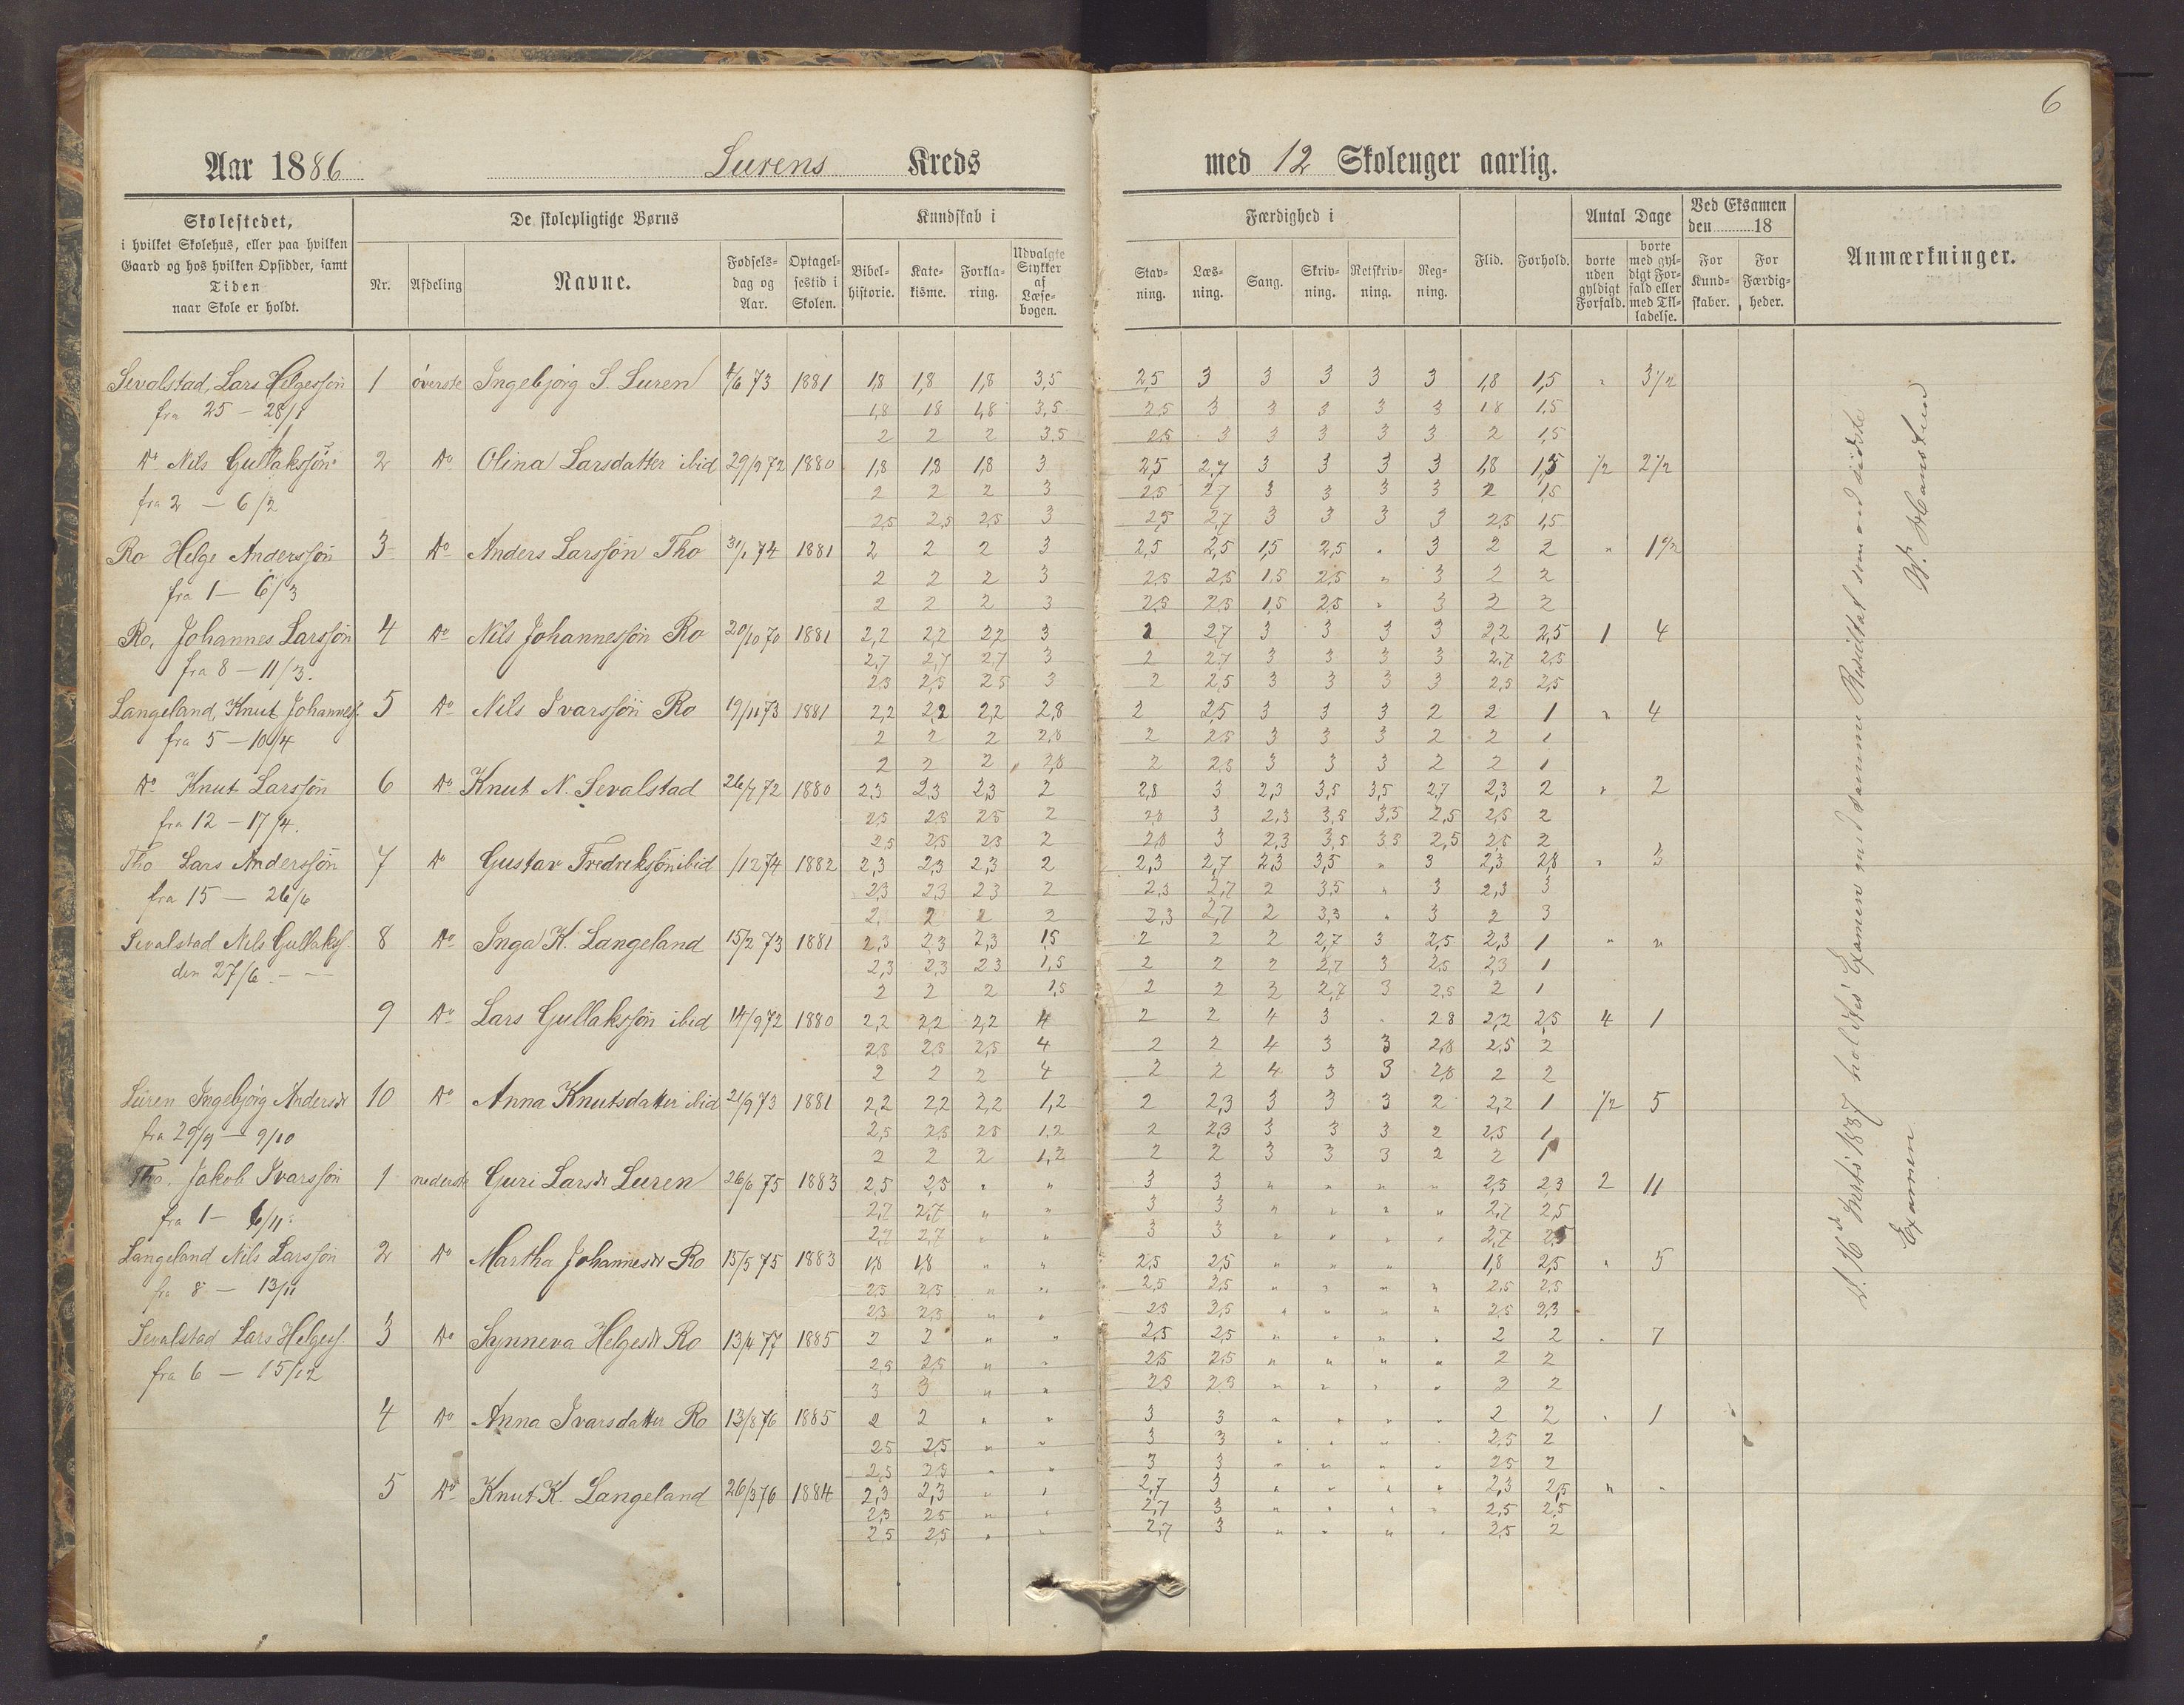 6
Aar 1886 Lurens Kreds med 12 Skoleuger aarlig.
Skolestedet, i hvilket Skolehus, eller paa hvilken Gaard og hos hvilken Opsidder, samt Tiden naar Skole er holdt.
De skolepligtige Børns
Nr. Afdeling Navne. Fødsels-dag og Aar. Optagel-sestid i Skolen.
Kundskab i
Bibel-historie. Kate-kisme. Forkla-ring. Udvalgte Stykker af Læse-bogen.
Færdighed i
Stav-ning. Læs-ning. Sang. Skriv-ning. Retskriv-ning. Reg-ning.
Flid. Forhold.
Antal Dage
borte uden gyldigt Forfald. borte med gyl-digt For-fald eller med Til-ladelse.
Ved Eksamen den 18
For Kund-skaber. For Færdig-heder.
Anmærkninger.
Sevalstad, Lars Helgessøn 1 øverste Ingebjørg S. Luren 4/6 73 1881 1,8 1,8 1,8 3,5 2,5 3 3 3 3 3 1,8 1,5 " 3 1/2
fra 25 - 28/1 1,8 1,8 1,8 3,5 2,5 3 3 3 3 3 1,8 1,5
2 2 2 3,5 2,5 3 3 3 3 3 2 1,5
Do Nils Gullakssøn 2 Do Olina Larsdatter ibid 29/3 72 1880 1,8 1,8 1,8 3 2,5 2,7 3 3 3 3 1,8 1,5 1/2 2 1/2
fra 2 - 6/2 2 2 2 3 2,5 2,7 3 3 3 3 2 1,5
2,5 2,5 2,5 3 2,5 2,7 3 3 3 3 2,5 1,5
Ro Helge Anderssøn 3 Do Anders Larssøn Tho 31/1 74 1881 2 2 2 3 2,5 2,5 1,5 2,5 " 3 2 2 " 1 1/2
fra 1 - 6/3 2 2 2 3 2,5 2,5 1,5 2,5 " 3 2 2
2 2 2 3 2,5 2,5 1,5 2,5 " 3 2 2
Ro, Johannes Larssøn 4 Do Nils Johannessøn Ro 20/10 70 1881 2,2 2,2 2,2 3 2 2,7 3 3 3 3 2,2 2,5 1 4
fra 8 - 11/3. 2,7 2,7 2,7 3 2 2,7 3 3 3 3 2,7 2,5
2,5 2,5 2,5 3 2 2,5 3 3 3 3 2,5 2,5
Langeland, Knut Johanness. 5 Do Nils Ivarssøn Ro 19/11 73 1881 2,2 2,2 2,2 2,8 2 2,5 3 3 3 2 2 1 " 4
fra 5 - 10/4 2 2 2 2,8 2 2,5 3 3 3 2 2 1
2 2 2 2,8 2 2,5 3 3 3 2 2 1
Do Knut Larssøn 6 Do Knut N. Sevalstad 26/7 72 1880 2,3 2,3 2,3 2 2,8 3 2,3 3,5 3,5 2,7 2,3 2 " 2
fra 12 - 17/4. 2,5 2,5 2,5 2 2,8 3 2,3 3,5 3,5 2,5 2,5 2
2,5 2,5 2,5 2 2,8 3 2,3 3,5 3,5 2,5 2,5 2
Tho Lars Anderssøn 7 Do Gustav Fredrekssøn ibid /12 74 1882 2,3 2,3 2,3 2 2,3 2,7 2,3 3,5 " 3 2,3 2,8 " 3
fra 15 - 26/6 2,3 2,3 2,3 2 2,3 2,7 2 3,5 " 3 2,3 3
2 2 2 2 2,3 2,7 2 3,5 " 3 2 3
Sevalstad Nils Gullakss. 8 Do Inga K. Langeland 15/2 73 1881 2,3 2,3 2,3 1,5 2 2 2 2,7 3 2,5 2,3 1 " "
den 27/6 - 2,3 2,3 2,3 1,5 2 2 2 2,7 3 2,5 2,3 1
2 2 2 1,5 2 2 2 2,7 3 2,5 2 1
9 Do Lars Gullakssøn ibid 14/9 72 1880 2,2 2,2 2,2 4 2 2 4 3 " 2,8 2,2 2,5 4 1
2,5 2,5 2,5 4 2 2 4 3 3 2,8 2,5 2
2 2 2 4 2 2 4 3 3 2,8 2 2
Luren Ingebjørg Andersdr 10 Do Anna Knutsdatter ibid 21/9 73 1881 2,2 2,2 2,2 1,2 2 2,3 3 3 3 2 2,2 1 1/2 5
fra 29/9 - 9/10 2,5 2,5 2,5 1,2 2 2,3 3 3 3 2 2,5 1
2 2 2 1,2 2 2 3 3 3 2 2 1
Tho. Jakob Ivarssøn 1 nederste Guri Larsdr Luren 26/6 75 1883 2,5 2,5 " " 3 3 " " " " 2,5 2,3 2 11
fra 1 - 6/11 2,7 2,7 " " 3 3 " " " " 2,7 2,5
2,7 2,7 " " 3 3 " " " " 2,7 2,5
Langeland Nils Larssøn 2 Do Martha Johannesdr Ro 15/5 75 1883 1,8 1,8 " " 2,5 2,5 " " " " 1,8 2,5 " 5
fra 8 - 13/11 2,5 2,5 " " 2,5 2,5 " " " " 2,5 2,5
2,3 2,3 " " 2,5 2,5 " " " " 2,5 2,3
Sevalstad Lars Helgess. 3 Do Synneva Helgesdr Ro 13/4 77 1885 2 2 " " 2,5 2,5 " " " " 2 2 " 7
fra 6 - 15/12 2,5 2,5 " " 2,5 2,5 " " " " 2 2
3 3 " " 2,5 2,5 " " " " 2 2
4 Do Anna Ivarsdatter Ro 13/8 76 1885 2 2 " " 3 3 " " " " 2 2 " 1
2,5 2,5 " " 3 3 " " " " 2,5 2
2,5 2,5 " " 3 3 " " " " 2,5 2
5 Do Knut K. Langeland 26/3 76 1884 2,3 2,3 " " 2,7 3 " " " " 2,3 2,5 " "
2,5 2,5 " " 2,7 3 " " " " 2,5 2,5
2,5 2,5 " " 2,7 3 " " " " 2,5 2
d. 16de Marts 1887 holdtes Examen med samme Resultat som ved sidste
Examen.